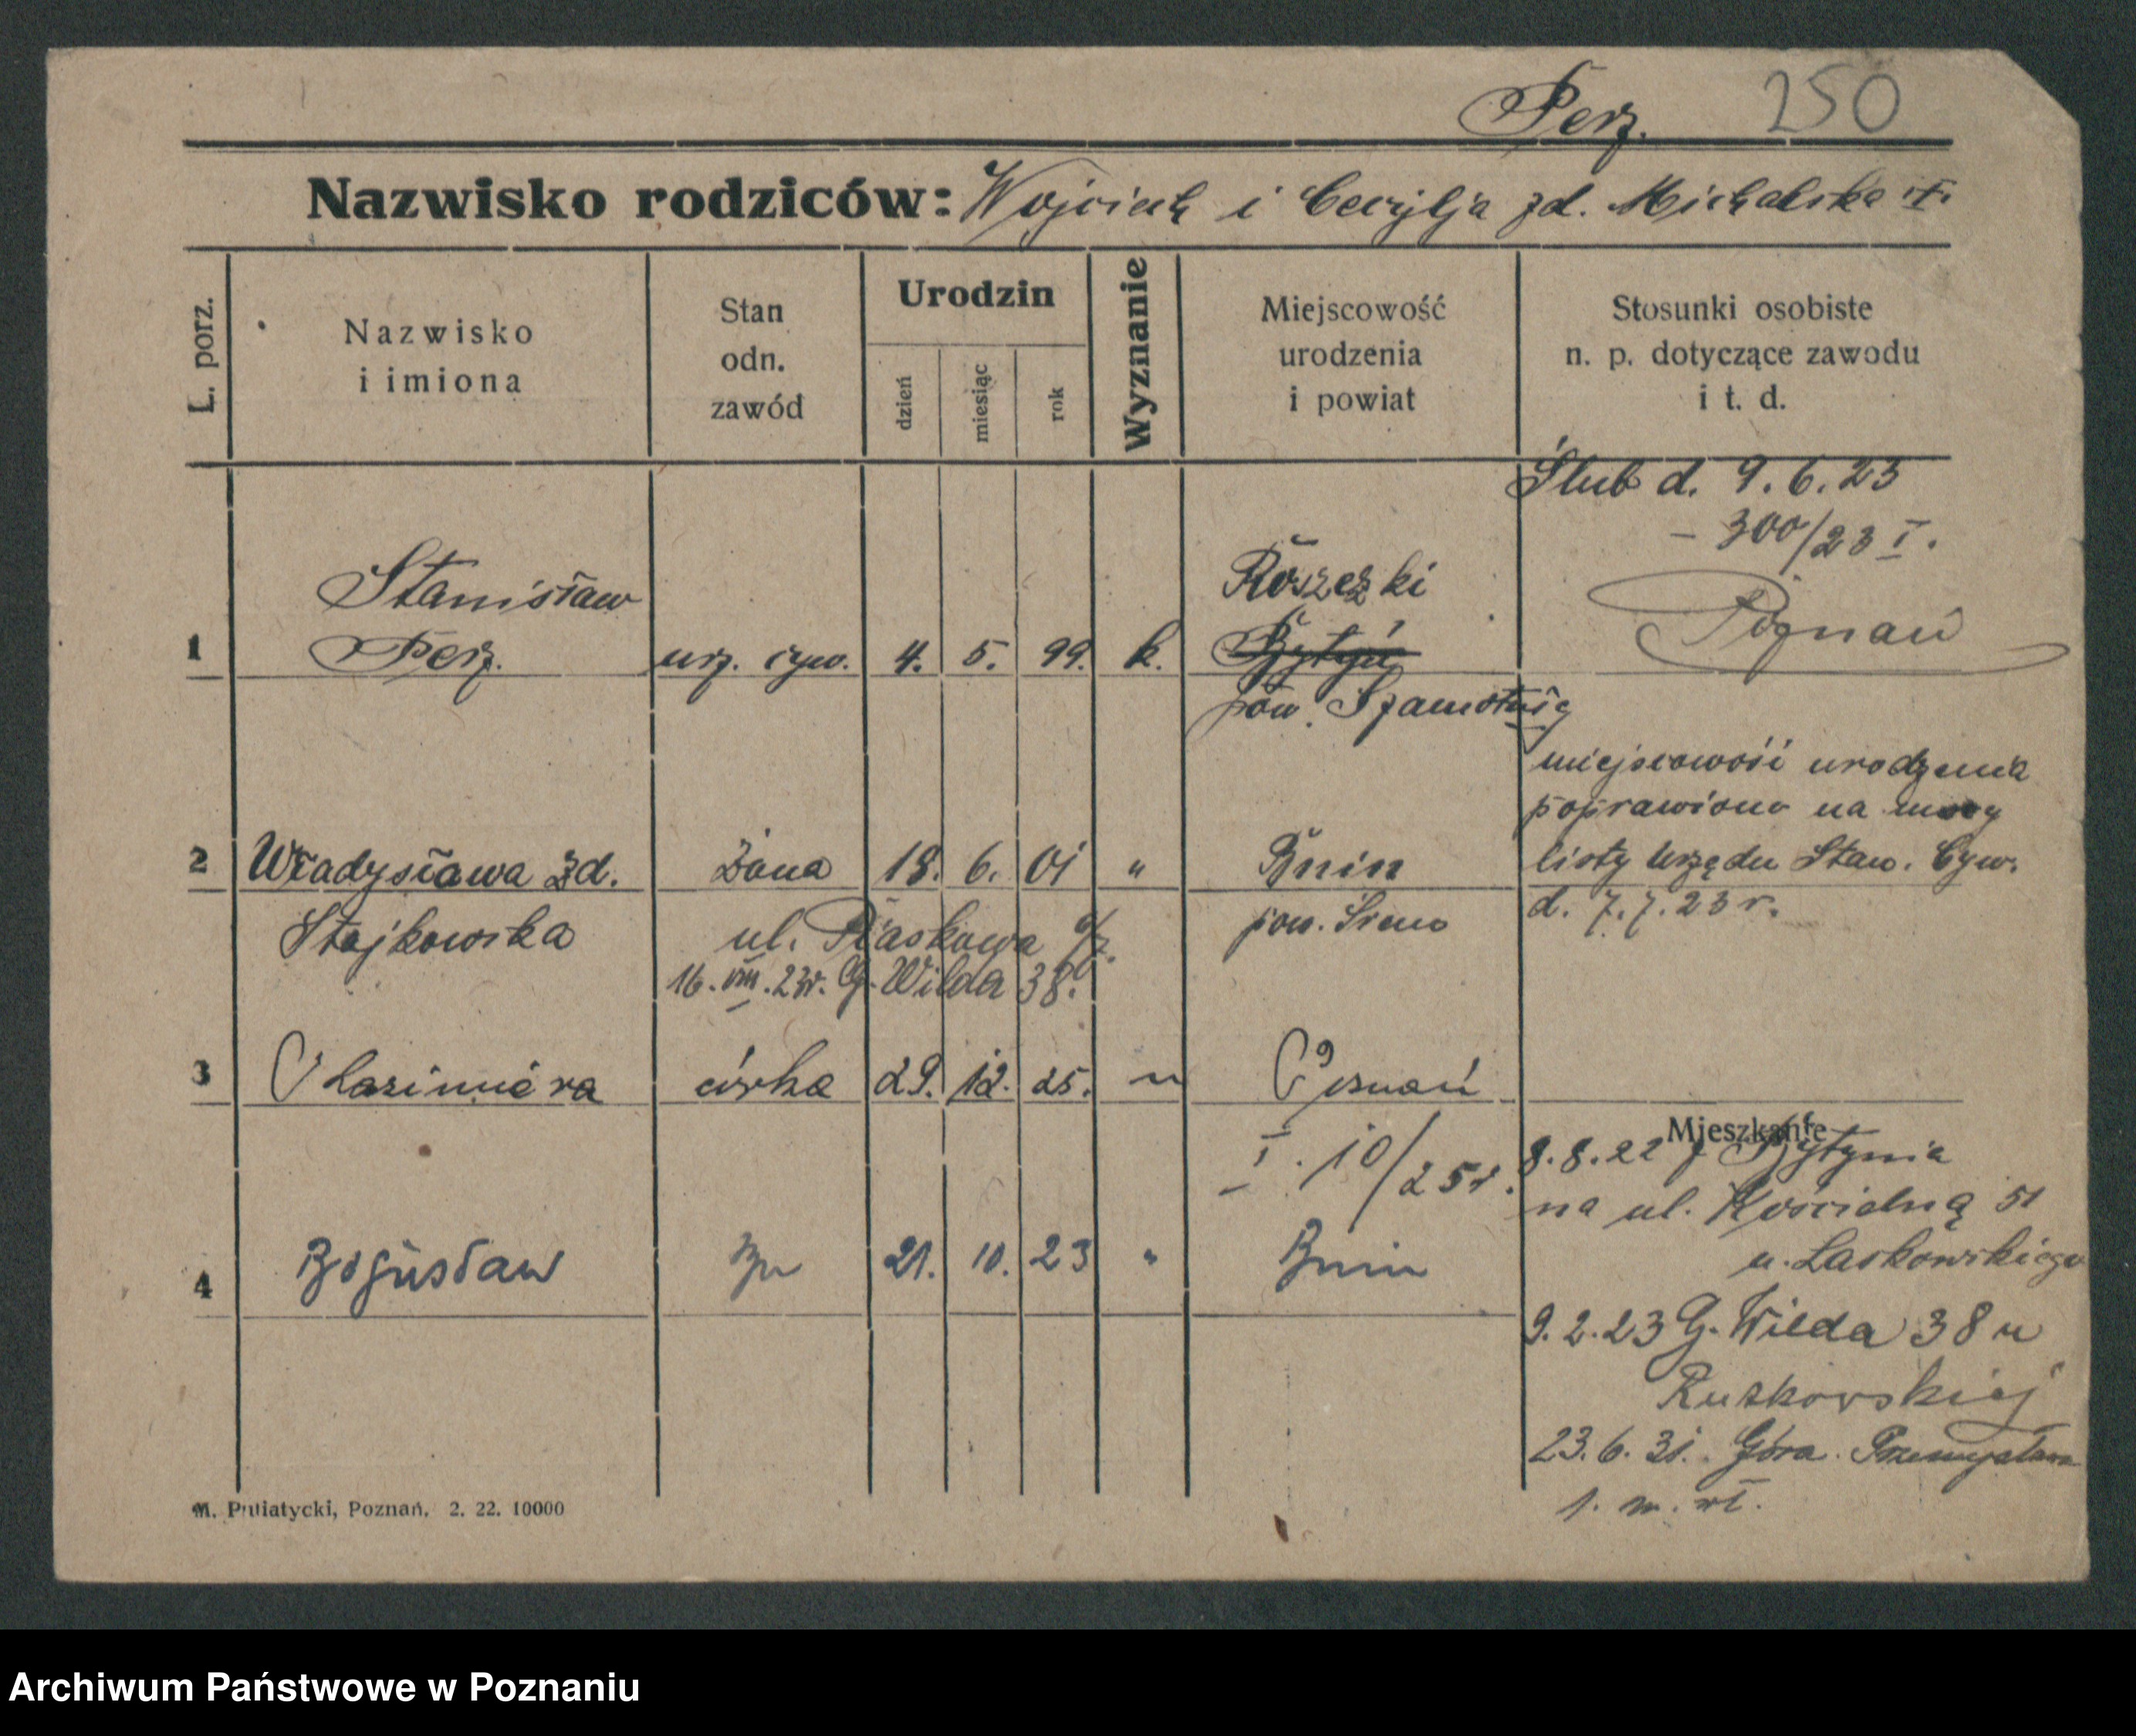 Perz. 250
Nazwisko rodziców: Wojciech i Cecylja zd. Michalska
L. porz.
Nazwisko
i imiona
Stan
odn.
zawód
Urodzin
dzień
miesiąc
rok
Wyznanie
Miejscowość
urodzenia
i powiat
Stosunki osobiste
n. p. dotyczące zawodu
i t. d.
Ślub d. 9.6.23
- 300/23 I.
Poznań
1 Stanisław
Perz. urz. cyw. 4. 5. 99. k. Roszczki
Bytyń
pow. Szamotuły
miejscowość urodzenia
poprawiono na mocy
listy Urzędu Stan. Cyw.
d. 7.7.23 r.
2 Władysława zd. żona 18. 6. 01 " Bnin
Stojkowska pow. Śrem
ul. Piaskowa
16.VIII.23r. G. Wilda 38.
3 Kazimiera córka 29. 12. 25. " Poznań
I. 10/25r.
4 Bogusław 21. 10. 23 " Bnin
Mieszkanie
8.8.22 z Bytynia
na ul. Kościelną 51
u. Laskowskiego
9.2.23 G. Wilda 38 u
Rutkowskiej
23.6.31. Góra Przemysława
1. m. wł.
M. Putiatycki, Poznań. 2. 22. 10000
Archiwum Państwowe w Poznaniu